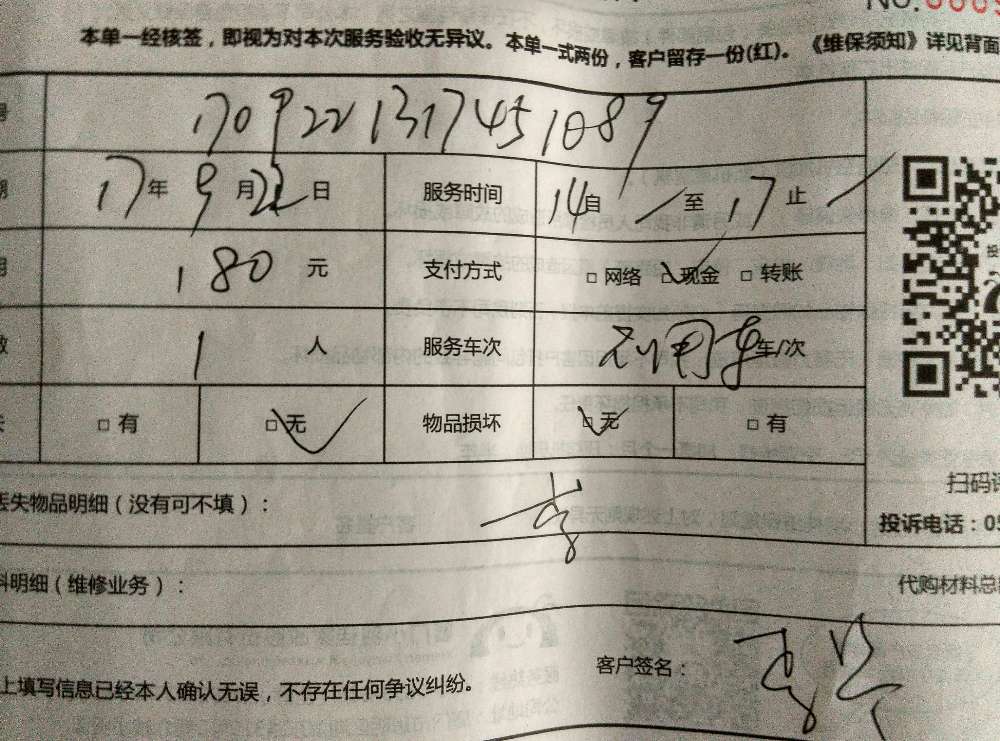 No. 000
本单一经核签，即视为对本次服务验收无异议。本单一式两份，客户留存一份(红)。《维保须知》详见背面
17092213174451089
17年9月22日 服务时间 14自 至17止
180元 支付方式 □网络 □现金 □转账
1人 服务车次 车/次
□有 □无 物品损坏 □无 □有
扫码
丢失物品明细（没有可不填）： 无
投诉电话：0
料明细（维修业务）： 代购材料总
上填写信息已经本人确认无误，不存在任何争议纠纷。 客户签名：